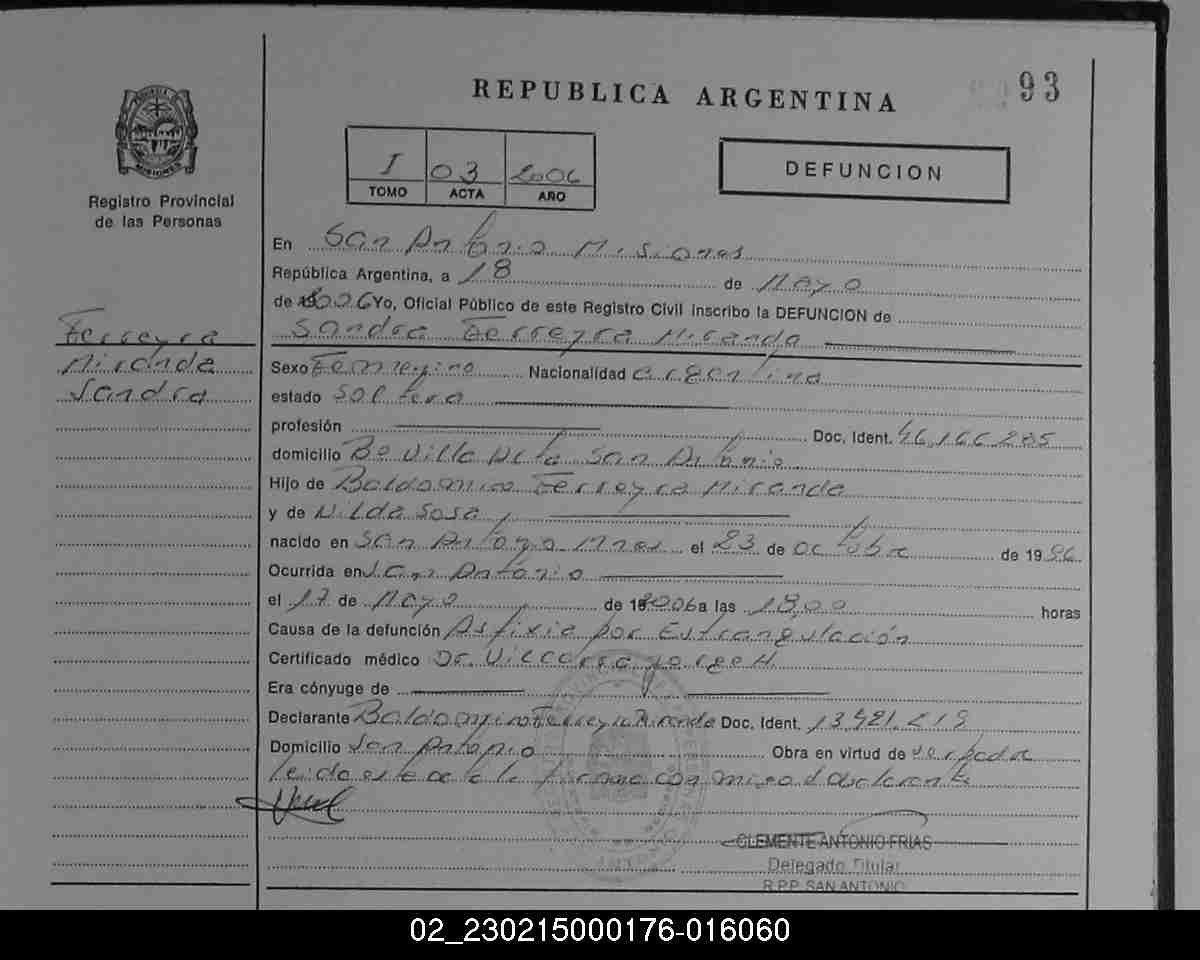 93
REPUBLICA ARGENTINA
PROVINCIA DE MISIONES
Registro Provincial
de las Personas
I 03 2006
TOMO ACTA AÑO
DEFUNCION
En San Antonio Misiones
República Argentina, a 18 de Mayo
de 2006 Yo, Oficial Público de este Registro Civil inscribo la DEFUNCION de
Sandra Ferreyra Miranda
Ferreyra
Miranda
Sandra
Sexo Femenino Nacionalidad argentina
estado Soltera
profesión Doc. Ident. 46.166.285
domicilio Bo Villa San Antonio
Hijo de Baldomiro Ferreyra Miranda
y de Nilda Sosa
nacido en San Antonio Mnes el 23 de octubre de 19
Ocurrida en San Antonio
el 17 de Mayo de 2006 a las 18,00 horas
Causa de la defunción Asfixia por Estrangulación
Certificado médico Dr. Jorge H.
Era cónyuge de
Declarante Baldomiro Ferreyra Miranda Doc. Ident. 13.921.219
Domicilio San Antonio Obra en virtud de ser padre
leida este acta la firma con migo el declarante
CLEMENTE ANTONIO FRIAS
Delegado Titular
R.P.P. SAN ANTONIO
02_230215000176-016060